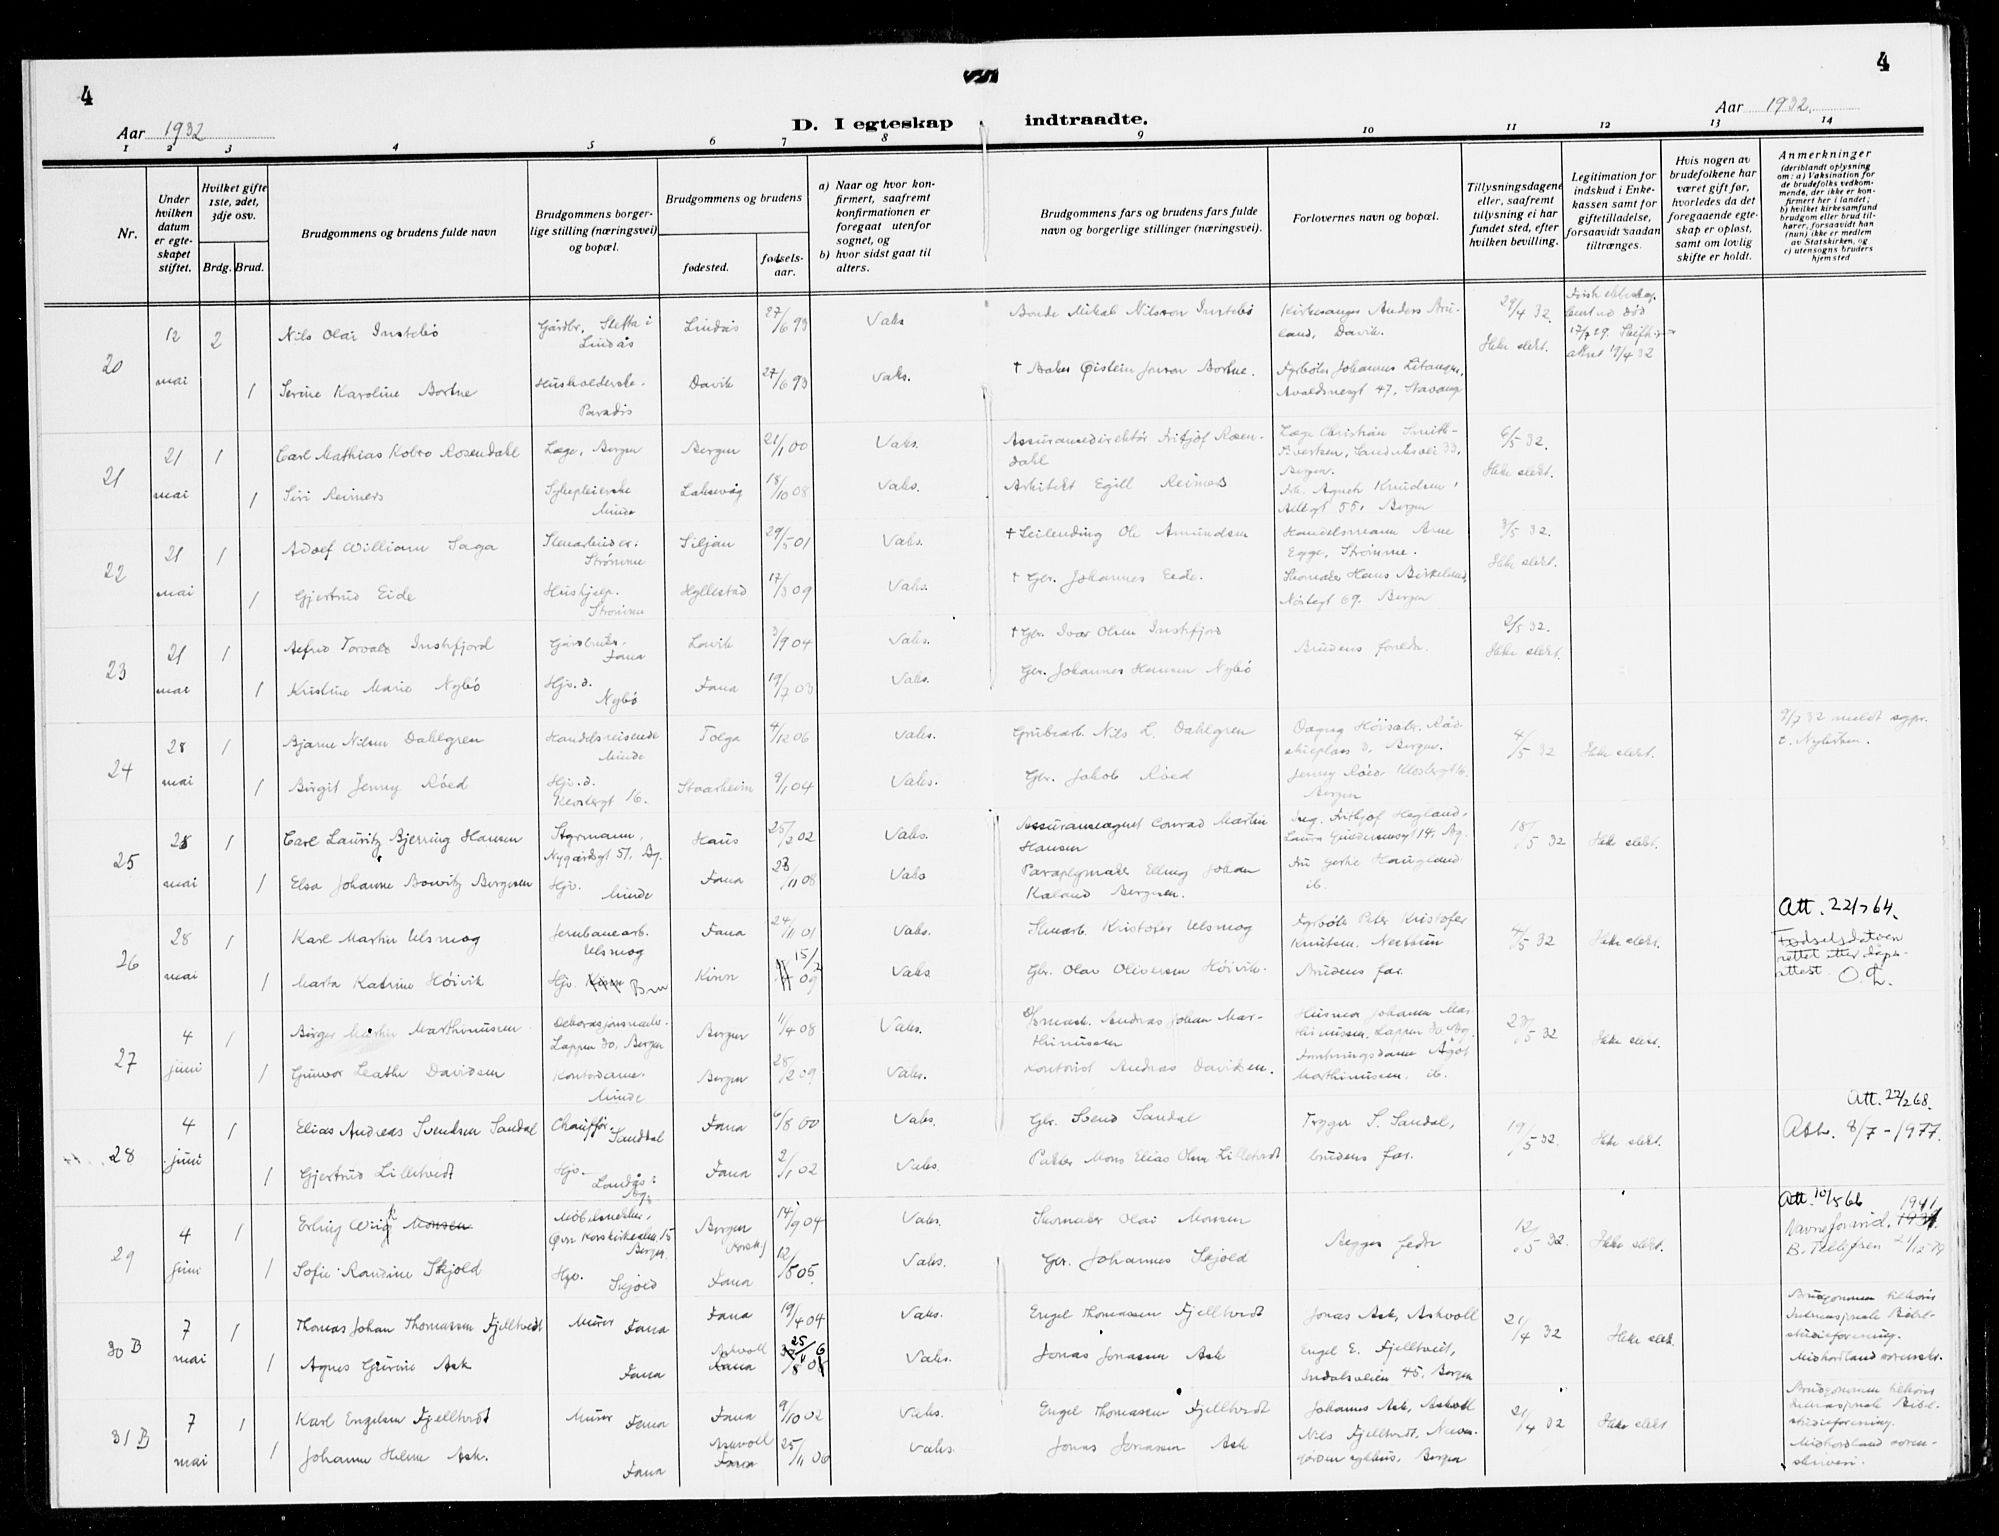 4
4
Aar 1932
D. I egteskap indtraadte.
Aar 1932.
1 2 3 4 5 6 7 8 9 10 11 12 13 14
Nr.
Under hvilken datum er egteskapet stiftet.
Hvilket gifte 1ste, 2det, 3dje osv.
Brdg. Brud.
Brudgommens og brudens fulde navn
Brudgommens borgerlige stilling (næringsvei) og bopæl.
Brudgommens og brudens
fødested.
fødselsaar.
a) Naar og hvor konfirmert, saafremt konfirmationen er foregaat utenfor sognet, og
b) hvor sidst gaat til alters.
Brudgommens fars og brudens fars fulde navn og borgerlige stillinger (næringsvei).
Forlovernes navn og bopæl.
Tillysningsdagene eller, saafremt tillysning ei har fundet sted, efter hvilken bevilling.
Legitimation for indskud i Enkekassen samt for giftetilladelse, forsaavidt saadan tiltrænges.
Hvis nogen av brudefolkene har været gift før, hvorledes da det foregaaende egteskap er opløst, samt om lovlig skifte er holdt.
Anmerkninger
(deriblandt oplysning om: a) Vaksination for de brudefolks vedkommende, der ikke er konfirmert her i landet; b) hvilket kirkesamfund brudgom eller brud tilhører, forsaavidt han (hun) ikke er medlem av Statskirken, og c) utensogns bruders hjemsted
20 12 mai 2 Nils Olai Instebø Gårdbr. Lindås Lindås 27/6 93 Vaks Bonde Mikal Nilsson Instebø Kirkesanger Anders Davik. 29/4 32. Ikke slekt. 17/7 29. 19/4 32
1 Serine Karoline Bortne Husholderske. Paradis Davik 27/6 93 Vaks. † Øistein Bortne. Fyrbøter Johannes 47, Stavanger
21 21 mai 1 Carl Mathias Kolbro Rosendahl Læge, Bergen Bergen 21/1 00 Vaks. Assuransedirektør Fritjof Rosendahl Læge Christian Bergen. 6/5 32. Ikke slekt.
1 Siri Reimers Sykepleierske Minde Laksevåg 18/10 08 Vaks. Arkitekt Egill Reimers Frk. Agneth Knudsen, 55, Bergen
22 21 mai 1 Adolf William Saga Stenarbeider. Strømme Siljan 29/5 01 Vaks. † Leilending Ole Amundsen Handelsmann Arne Egge, Strømme. 3/5 32. Ikke slekt.
1 Gjertrud Eide Hushjelp. Strømme Hyllestad 17/3 09 Vaks. † Gbr. Johannes Eide. Skomaker Hans Birkeland, 69. Bergen
23 21 mai 1 Alfred Torvald Instefjord Gårdbruker. Fana Lavik 3/9 04 Vaks. † Gbr. Ivar Olsen Instefjord Brudens foreldre 2/5 32. Ikke slekt.
1 Kristine Marie Nybø Hjv. d. Nybø Fana 19/7 03 Vaks. Gbr. Johannes Hansen Nybø
24 28 mai 1 Bjarne Nilsen Dahlgren Handelsreisende Minde Tolga 4/12 06 Vaks. Grubearb. Nils L. Dahlgren Dagny Høisæter, Rådstueplass 3, Bergen. 4/5 32 Ikke slekt. 9/7 32 meldt sogpr. t. Nykirken.
1 Birgit Jenny Røed Hjv. d. Klostergt 16. Staarheim 9/1 04 Vaks. Gbr. Jakob Røed Jenny Røed Klostergt 16. Bergen
25 28 mai 1 Carl Lauritz Bjerring Hansen Styrmann, Nygårdsgt 51, Bg. Haus 25/2 02 Vaks. Assuranseagent Conrad Martin Hansen Ing. Fritjof Hegland, 14, Bg. 18/5 32 Ikke slekt.
1 Elsa Johanne Bowitz Bergesen Hjv. Minde Fana 23/11 08 Vaks Paraplymaker Elling Johan Kaland Bergesen. Fru Haugland ib.
26 28 mai 1 Karl Martin Ulsmog Jernbanearb. Ulsmog Fana 24/11 01 Vaks. Stenarb. Kristofer Ulsmog Fyrbøter Peter Kristofer Knutsen. Nesttun 4/5 32 Ikke slekt. Att. 22/7 64. Fødselsdatoen rettet etter dåpsattest.
1 Marta Katrine Høivik Hjv. Kinn 15/2 09 Vaks. Gbr. Olai Oliversen Høivik. Brudens far.
27 4 juni 1 Birger Martin Marthinussen Dekorasjonsmaler. Lappen 30, Bergen Bergen 11/4 08 Vaks. Andreas Johan Marthinussen Johanna Marthinussen, Lappen 30, Bg. 23/5 32 Ikke slekt.
1 Gunvor Leathe Davidsen Kontordame. Minde Bergen 28/2 09 Vaks. Kontorist Andreas Davidsen. Forretningsdame Ågot Marthinussen. ib.
28 4 juni 1 Elias Andreas Svendsen Sandal Chauffør, Sandal Fana 6/8 00 Vaks. Gbr. Svend Sandal Trygve S. Sandal, brudens far. 19/5 32. Ikke slekt. Att. 27/2 68. Att. 8/7-1977.
1 Gjertrud Lilletvedt Hjv. Landås Bg. Fana 2/1 02 Vaks. Pakker Mons Elias Olsen Lilletvedt
29 4 juni 1 Erling Wiig Monsen Møbelsnekker, Øvre Korskirkealm. 15 Bergen Bergen 14/9 04 Vaks. Skomaker Olai Monsen Begges fedre 12/5 32. Ikke slekt. Att. 10/5 66 1941 Navneforand. B. Tellefsen
1 Sofie Randine Skjold Hjv. Skjold Fana 12/8 05. Vaks. Gbr. Johannes Skjold
30 B 7 mai 1 Thomas Johan Thomassen Fjelltvedt Murer Fana Fana 19/4 04 Vaks. Engel Thomassen Fjelltvedt Jonas Ask, Askvoll 21/4 32 Ikke slekt. Brudgommen tilhører Internasjonale Bibelstudieforening. Midhordland sorenskr.
1 Agnes Gurine Ask Fana Askvoll Vaks. Jonas Jonassen Ask Engel E. Fjelltveit, 45, Bergen
31 B 7 mai 1 Karl Engelsen Fjelltvedt Murer Fana Fana 9/10 02 Vaks. Engel Thomassen Fjelltvedt Johannes Ask, Askvoll 21/4 32 Ikke slekt Brudgommen tilhører Internasjonale Bibelstudieforening. Midhordland sorenskriveri.
1 Johanne Helene Ask. Fana Askvoll Fana 25/11 06 Vaks. Jonas Jonassen Ask Nils Fjelltvedt, sykehus, Bergen